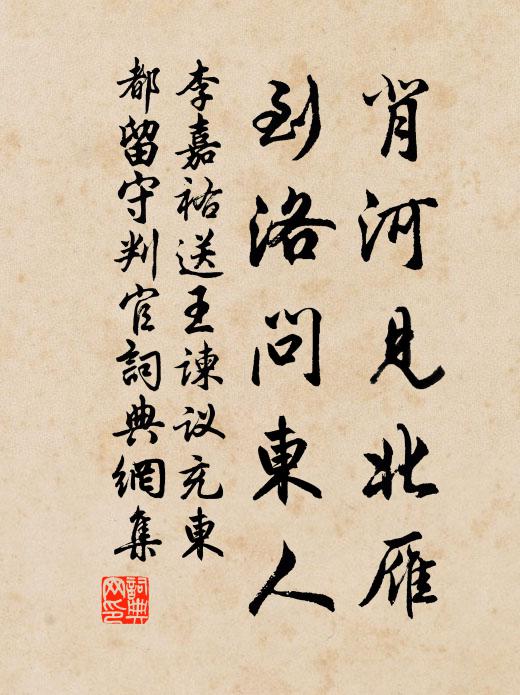 背河见北雁
到洛問東人
李嘉祐送王諫议充東
都留守判官詞典網集
詞典
网印